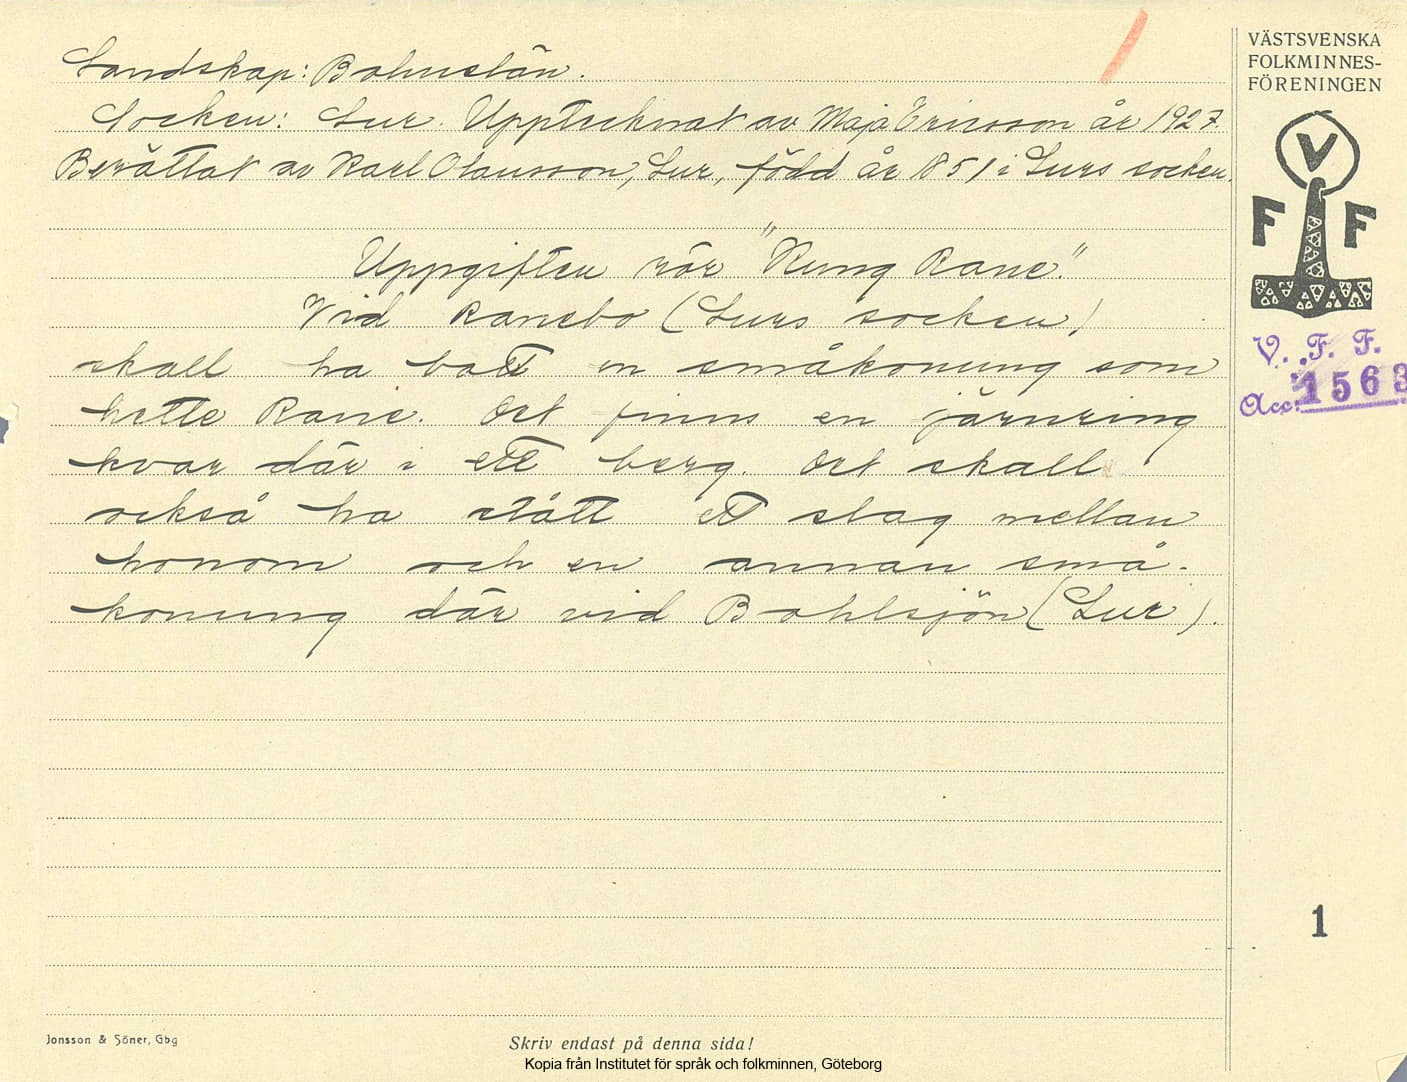 Landskap: Bohuslän.
Socken: Lur. Upptecknat av Maja Ericsson år 1927.
Berättat av Karl Olausson, Lur, född år 1851 i Lurs socken.
Uppgiften rör "Kung Rane."
Vid Ranebo (Lurs socken)
skall ha bott en småkonung som
hette Rane. Det finns en järnring
kvar där i ett berg. Det skall
också ha stått ett slag mellan
honom och en annan små-
konung där vid Bohlsjön (Lur).
VÄSTSVENSKA
FOLKMINNES-
FÖRENINGEN
V
F F
V. F. F.
Acc. 1563
1
Jonsson & Söner, Gbg
Skriv endast på denna sida!
Kopia från Institutet för språk och folkminnen, Göteborg